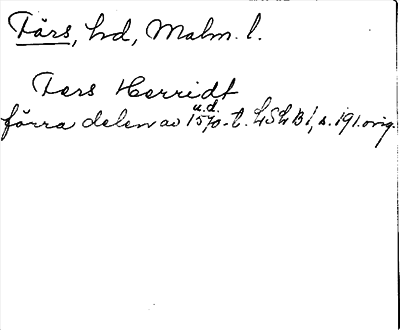 Färs, hd, Malm. l.
Fers Herridt
u.d.
förra delen av 1570-t. LSLB 1, s. 191. orig.